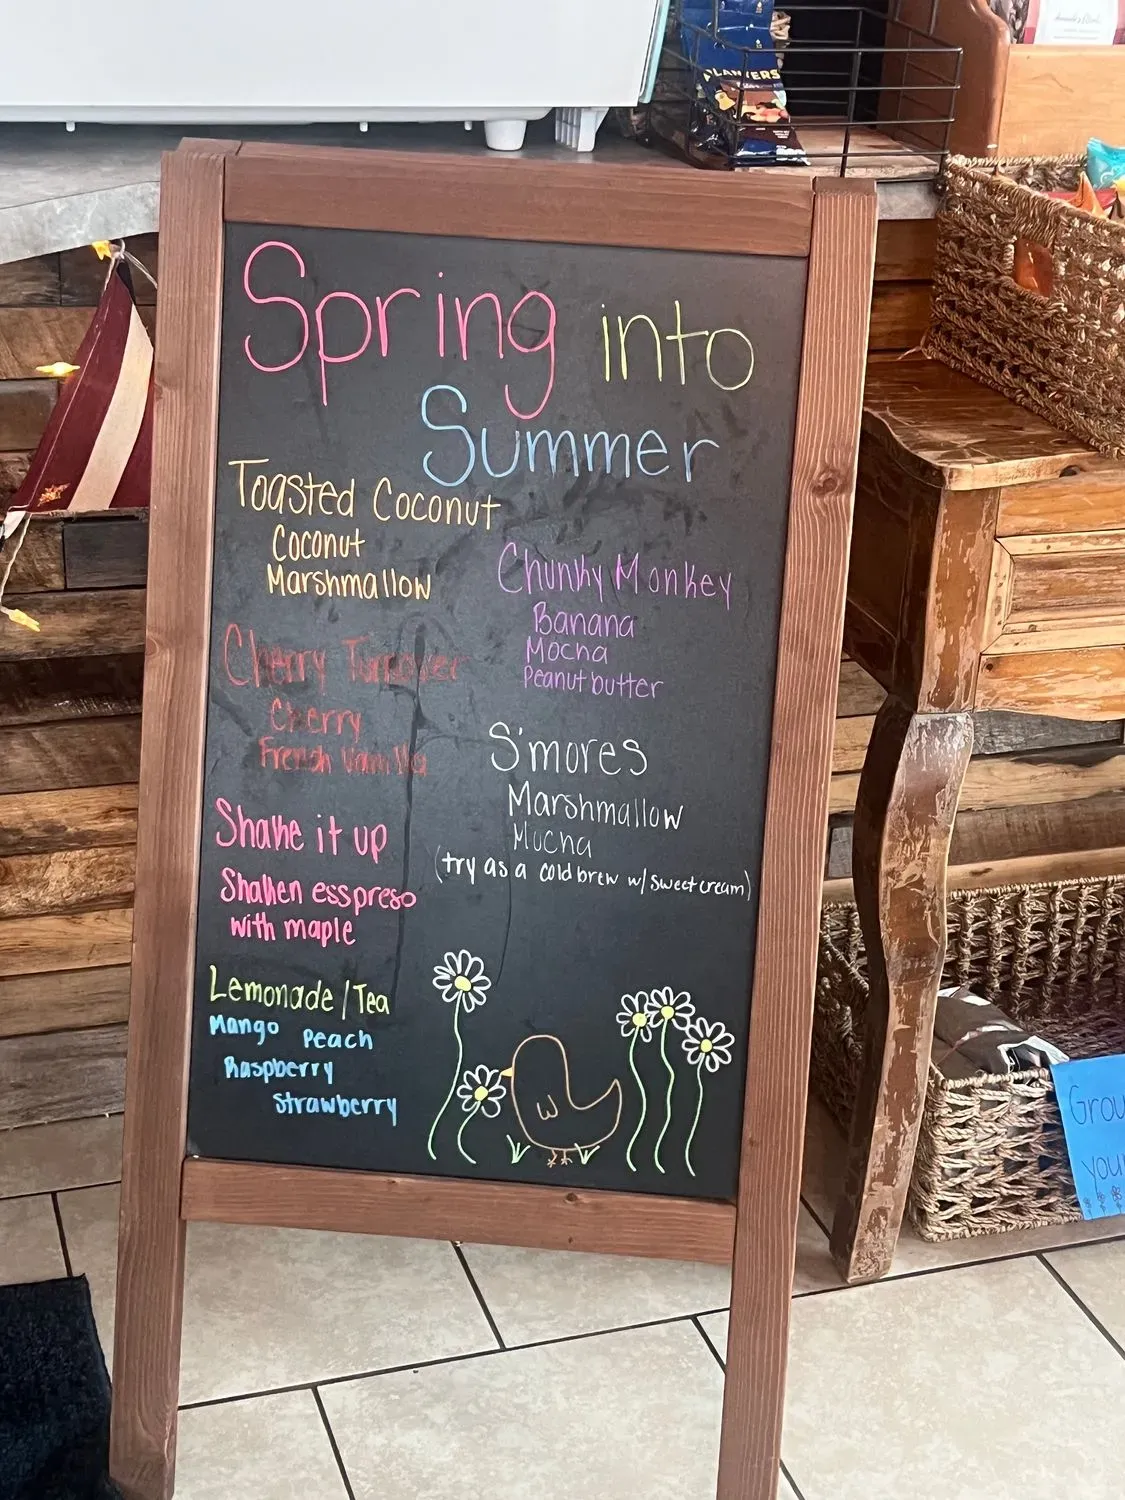 PLANTERS
Spring into
Summer
Toasted Coconut
Coconut
Marshmallow
Cherry Turnover
Cherry
French Vanilla
Shake it up
Shaken esspreso
with maple
Lemonade/Tea
Mango Peach
Raspberry
Strawberry
Chunky Monkey
Banana
Mocha
Peanut butter
S'mores
Marshmallow
Mocha
(try as a cold brew w/ sweet cream)
you